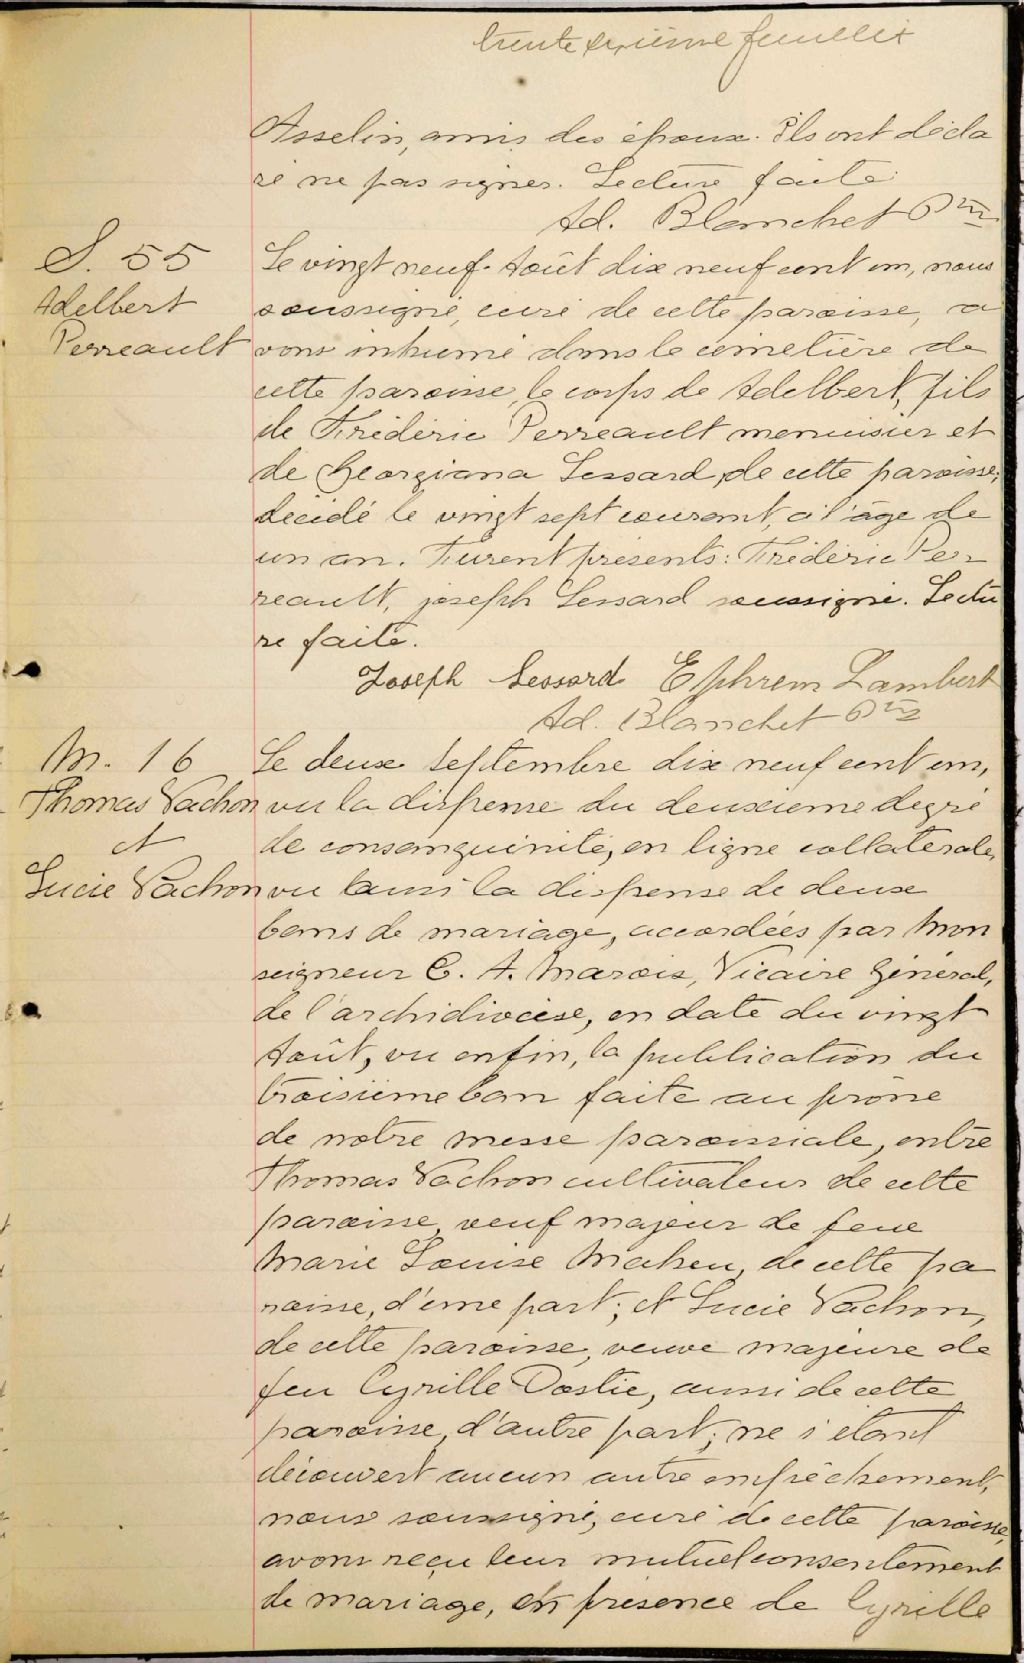 trente sixième feuillet
Asselin, amis des époux. Ils ont décla
ré ne pas signer. Lecture faite.
Ad. Blanchet Ptre
S. 55
Adelbert
Perreault
Le vingt neuf Août dix neuf cent un, nous
soussigné, curé de cette paroisse, a
vons inhumé dans le cimetière de
cette paroisse, le corps de Adelbert, fils
de Frédéric Perreault menuisier et
de Georgiana Lessard, de cette paroisse,
décédé le vingt sept courant, à l'âge de
un an. Furent présents: Frédéric Per
reault, joseph Lessard soussigné. Lectu
re faite.
Joseph Lessard Ephrem Lambert
Ad. Blanchet Ptre
M. 16
Thomas Vachon
et
Lucie Vachon
Le deux Septembre dix neuf cent un,
vu la dispense du deuxième degré
de consanguinité, en ligne collatérale,
vu aussi la dispense de deux
bans de mariage, accordées par Mon
seigneur C. A. Marois, Vicaire Général,
de l'archidiocèse, en date du vingt
Août, vu enfin, la publication du
troisième ban faite au prône
de notre messe paroissiale, entre
Thomas Vachon cultivateur de cette
paroisse, veuf majeur de feue
Marie Louise Maheu, de cette pa
roisse, d'une part; et Lucie Vachon,
de cette paroisse, veuve majeure de
feu Cyrille Dostie, aussi de cette
paroisse, d'autre part; ne s'étant
découvert aucun autre empêchement,
nous soussigné, curé de cette paroisse,
avons reçu leur mutuel consentement
de mariage, en présence de Cyrille